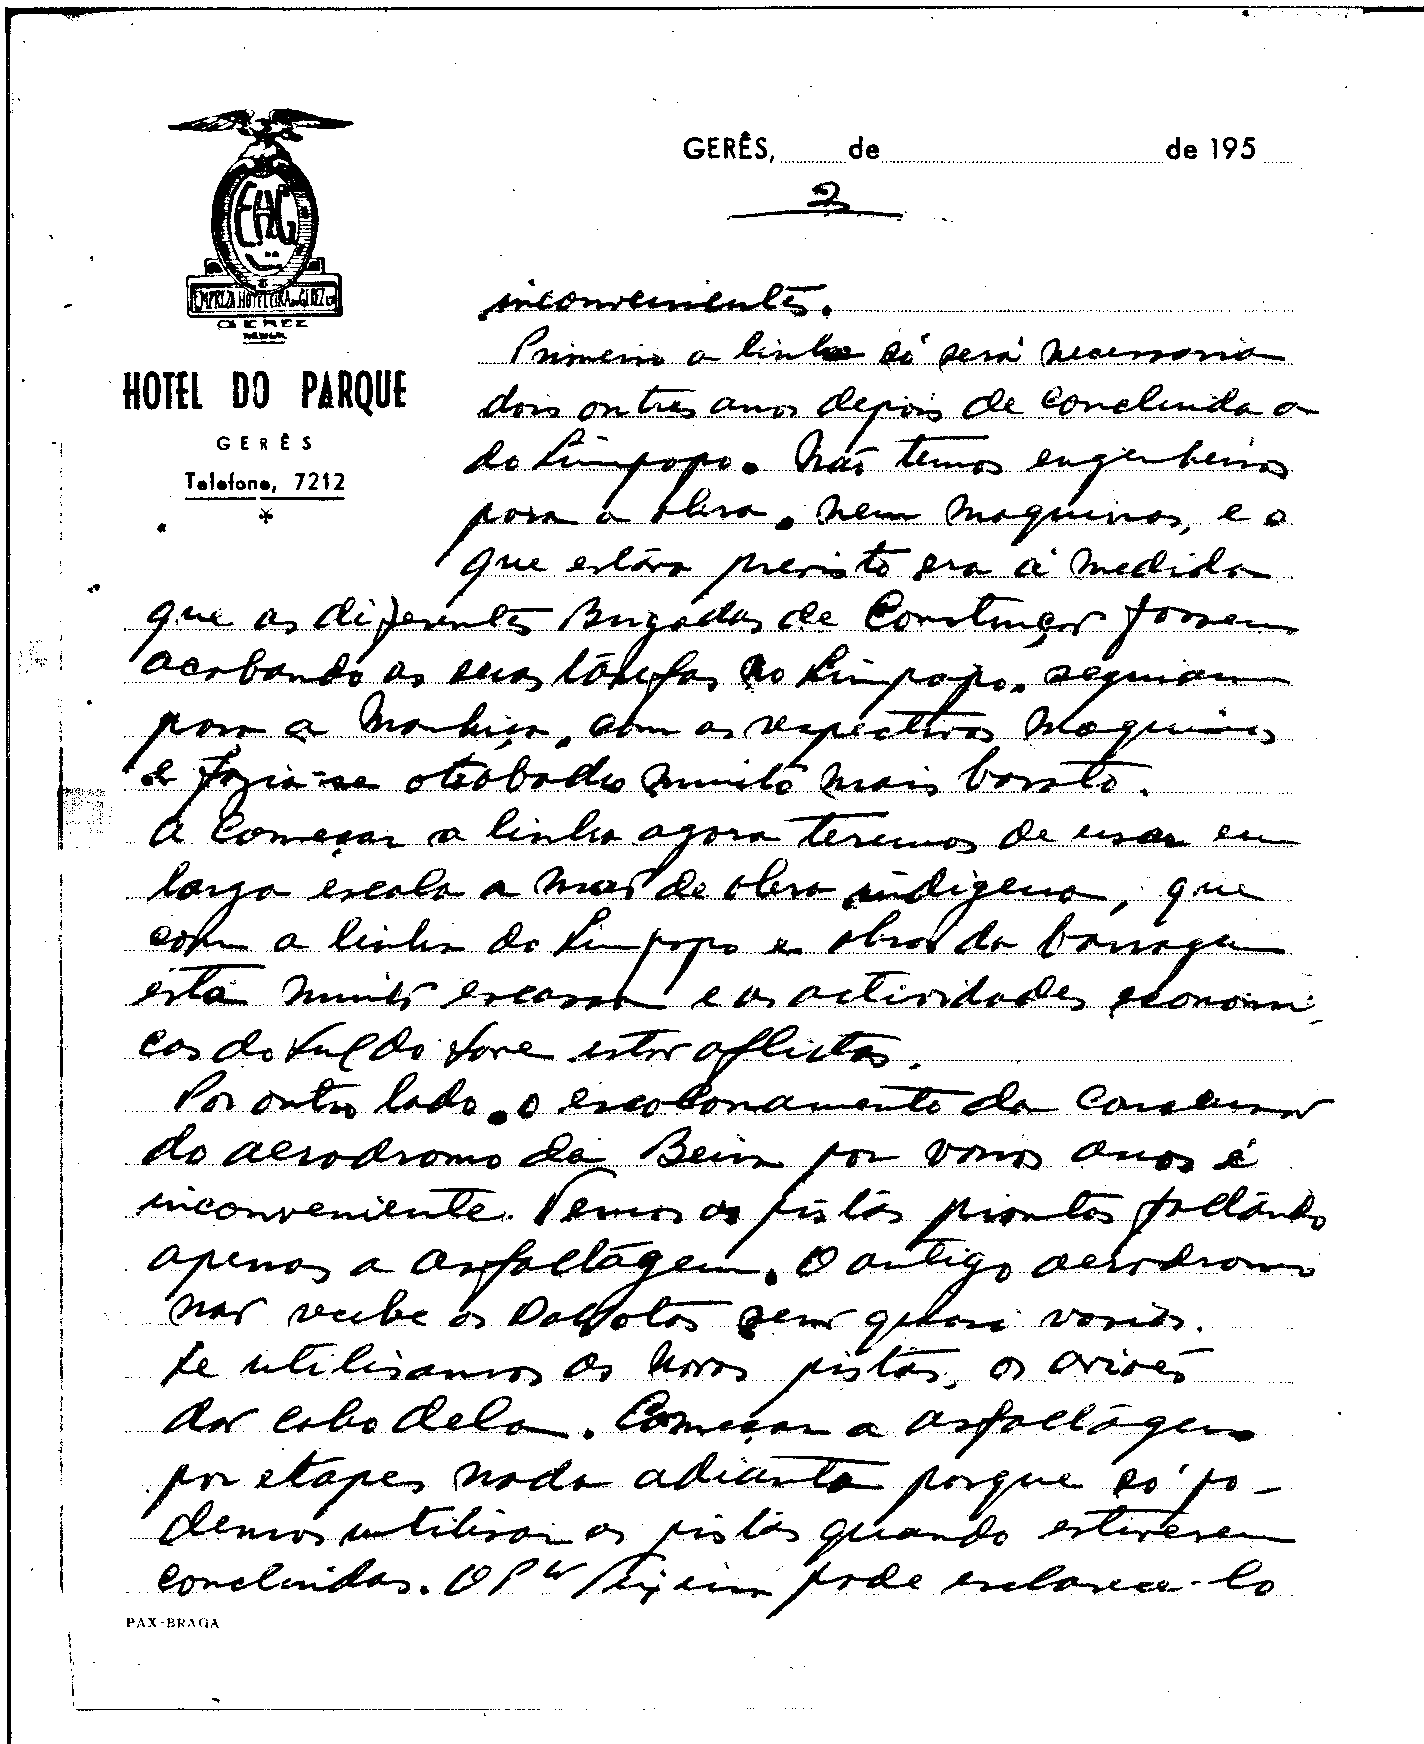 GERÊS, de de 195
2
EHG
EMPREZA HOTELEIRA DO GEREZ
GEREZ
HOTEL DO PARQUE
GERÊS
Telefone, 7212
inconvenientes.
Primeiro a linha só será necessaria
dois ou tres anos depois de concluida a
do Limpopo. Não temos engenheiros
para a obra, nem maquinas, e o
que estáva previsto era á medida
que as diferentes Brigadas de Construção fossem
acabando as suas tárefas no Limpopo, seguiam
para a com as respectivas maquinas
e fazia-se o trabalho muito mais barato.
A começar a linha agora teremos de usar em
larga escala a mão de obra indigena, que
com a linha do Limpopo e obras da barragem
está muito escassa e as actividades economi-
cas do Sul do Save estão aflictas.
Por outro lado, o escalonamento da
do aerodromo da Beira por varios anos é
inconveniente. Temos as pistas prontas faltando
apenas a asfaltágem. O antigo aerodromo
não recebe os Dakotas sem quasi vasios.
Se utilisamos as novas pistas, os aviões
dão cabo dela. Começar a asfaltágem
por etapes nada adianta porque só po-
demos utilisar as pistas quando estiverem
concluidas. O pode esclarece-lo
PAX-BRAGA